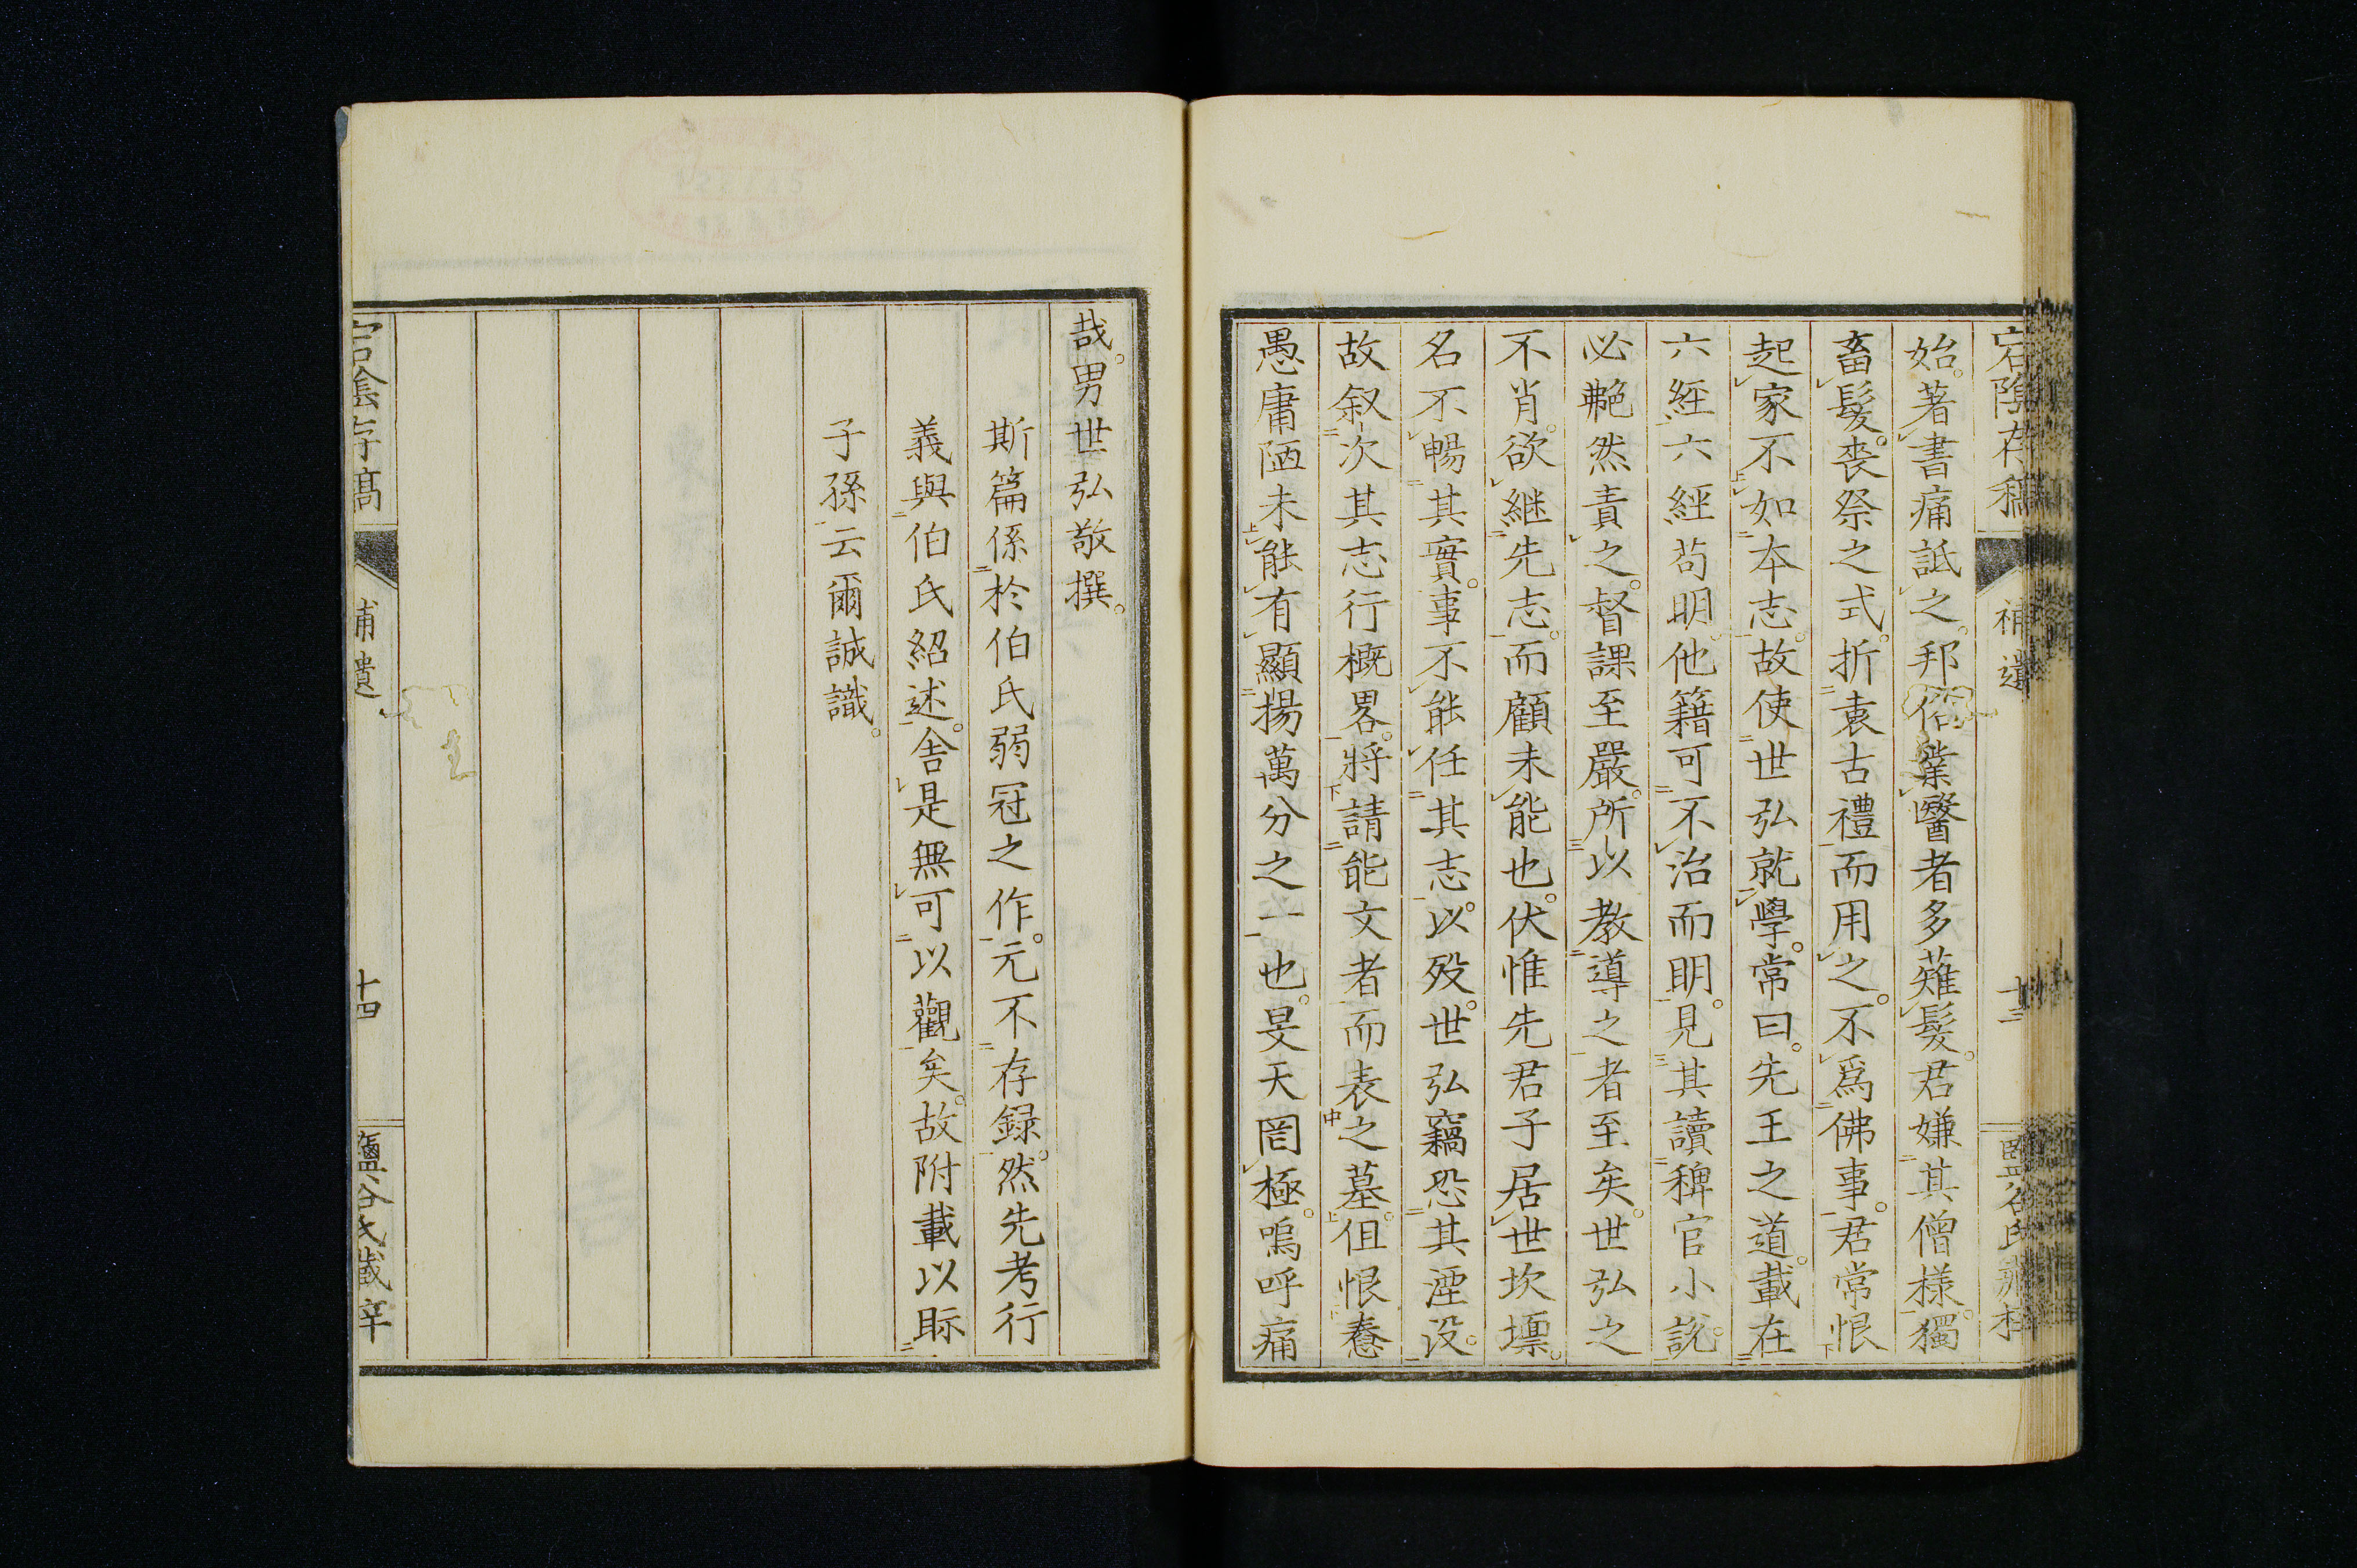 宕陰存稿 補遺 十三
始。著書痛詆之。邦俗業醫者多薙髮。君嫌其僧樣。獨
畜髮。喪祭之式。折衷古禮而用之。不爲佛事。君常恨
起家不如本志。故使世弘就學。常曰。先王之道。載在
六經。六經苟明。他籍可不治而明。見其讀稗官小說。
必艴然責之。督課至嚴。所以教導之者至矣。世弘之
不肖。欲継先志。而顧未能也。伏惟先君子居世坎壈。
名不暢其實。事不能任其志。以歿。世弘竊恐其湮没。
故叙次其志行概畧。將請能文者而表之墓。但恨惷
愚庸陋未能有顯揚萬分之一也。旻天罔極。嗚呼痛
哉。男世弘敬撰。
斯篇係於伯氏弱冠之作。元不存録。然先考行
義與伯氏紹述。舍是無可以觀矣。故附載以眎
子孫云爾誠識。
補遺 十四